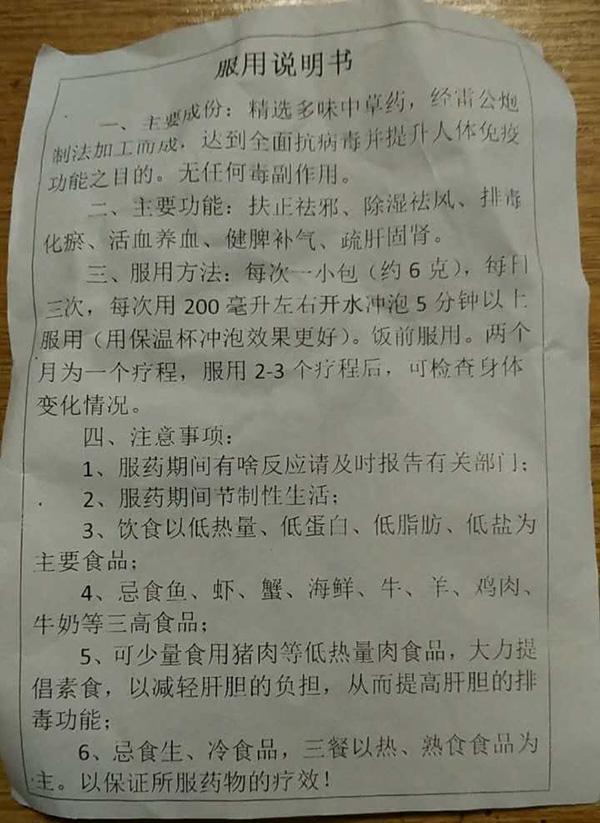 服用说明书
一、主要成份：精选多味中草药，经雷公炮
制法加工而成，达到全面抗病毒并提升人体免疫
功能之目的。无任何毒副作用。
二、主要功能：扶正祛邪、除湿祛风、排毒
化瘀、活血养血、健脾补气、疏肝固肾。
三、服用方法：每次一小包（约6克），每日
三次，每次用200毫升左右开水冲泡5分钟以上
服用（用保温杯冲泡效果更好）。饭前服用。两个
月为一个疗程，服用2-3个疗程后，可检查身体
变化情况。
四、注意事项：
1、服药期间有啥反应请及时报告有关部门；
2、服药期间节制性生活；
3、饮食以低热量、低蛋白、低脂肪、低盐为
主要食品；
4、忌食鱼、虾、蟹、海鲜、牛、羊、鸡肉、
牛奶等三高食品；
5、可少量食用猪肉等低热量肉食品，大力提
倡素食，以减轻肝胆的负担，从而提高肝胆的排
毒功能；
6、忌食生、冷食品，三餐以热、熟食食品为
主。以保证所服药物的疗效！